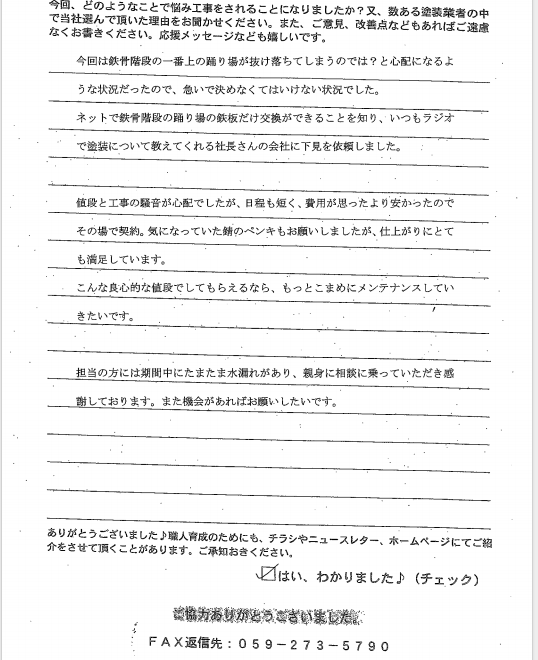 今回、どのようなことで悩み工事をされることになりましたか？又、数ある塗装業者の中
で当社選んで頂いた理由をお聞かせください。また、ご意見、改善点などもあればご遠慮
なくお書きください。応援メッセージなども嬉しいです。
今回は鉄骨階段の一番上の踊り場が抜け落ちてしまうのでは？と心配になるよ
うな状況だったので、急いで決めなくてはいけない状況でした。
ネットで鉄骨階段の踊り場の鉄板だけ交換ができることを知り、いつもラジオ
で塗装について教えてくれる社長さんの会社に下見を依頼しました。
値段と工事の騒音が心配でしたが、日程も短く、費用が思ったより安かったので
その場で契約。気になっていた錆のペンキもお願いしましたが、仕上がりにとて
も満足しています。
こんな良心的な値段でしてもらえるなら、もっとこまめにメンテナンスしてい
きたいです。
担当の方には期間中にたまたま水漏れがあり、親身に相談に乗っていただき感
謝しております。また機会があればお願いしたいです。
ありがとうございました♪職人育成のためにも、チラシやニュースレター、ホームページにてご紹
介をさせて頂くことがあります。ご承知おきください。
☑はい、わかりました♪（チェック）
ご協力ありがとうございました。
ＦＡＸ返信先：０５９－２７３－５７９０